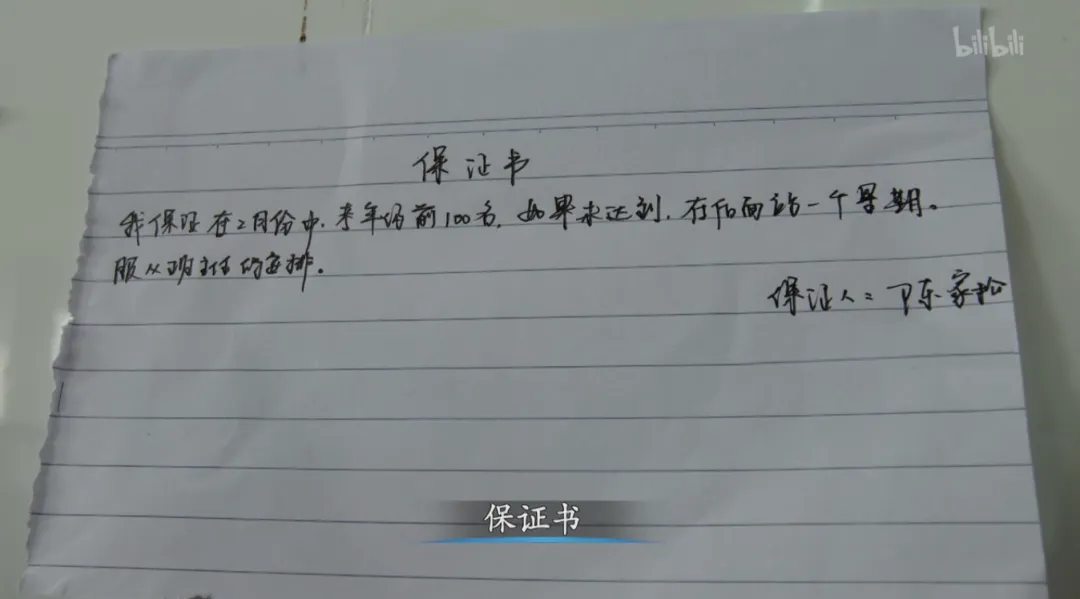 bilibili
保证书
我保证在2月份中,考年级前100名,如果未达到,在后面站一个星期。
服从班主任的安排。
保证人:陈家松
保证书